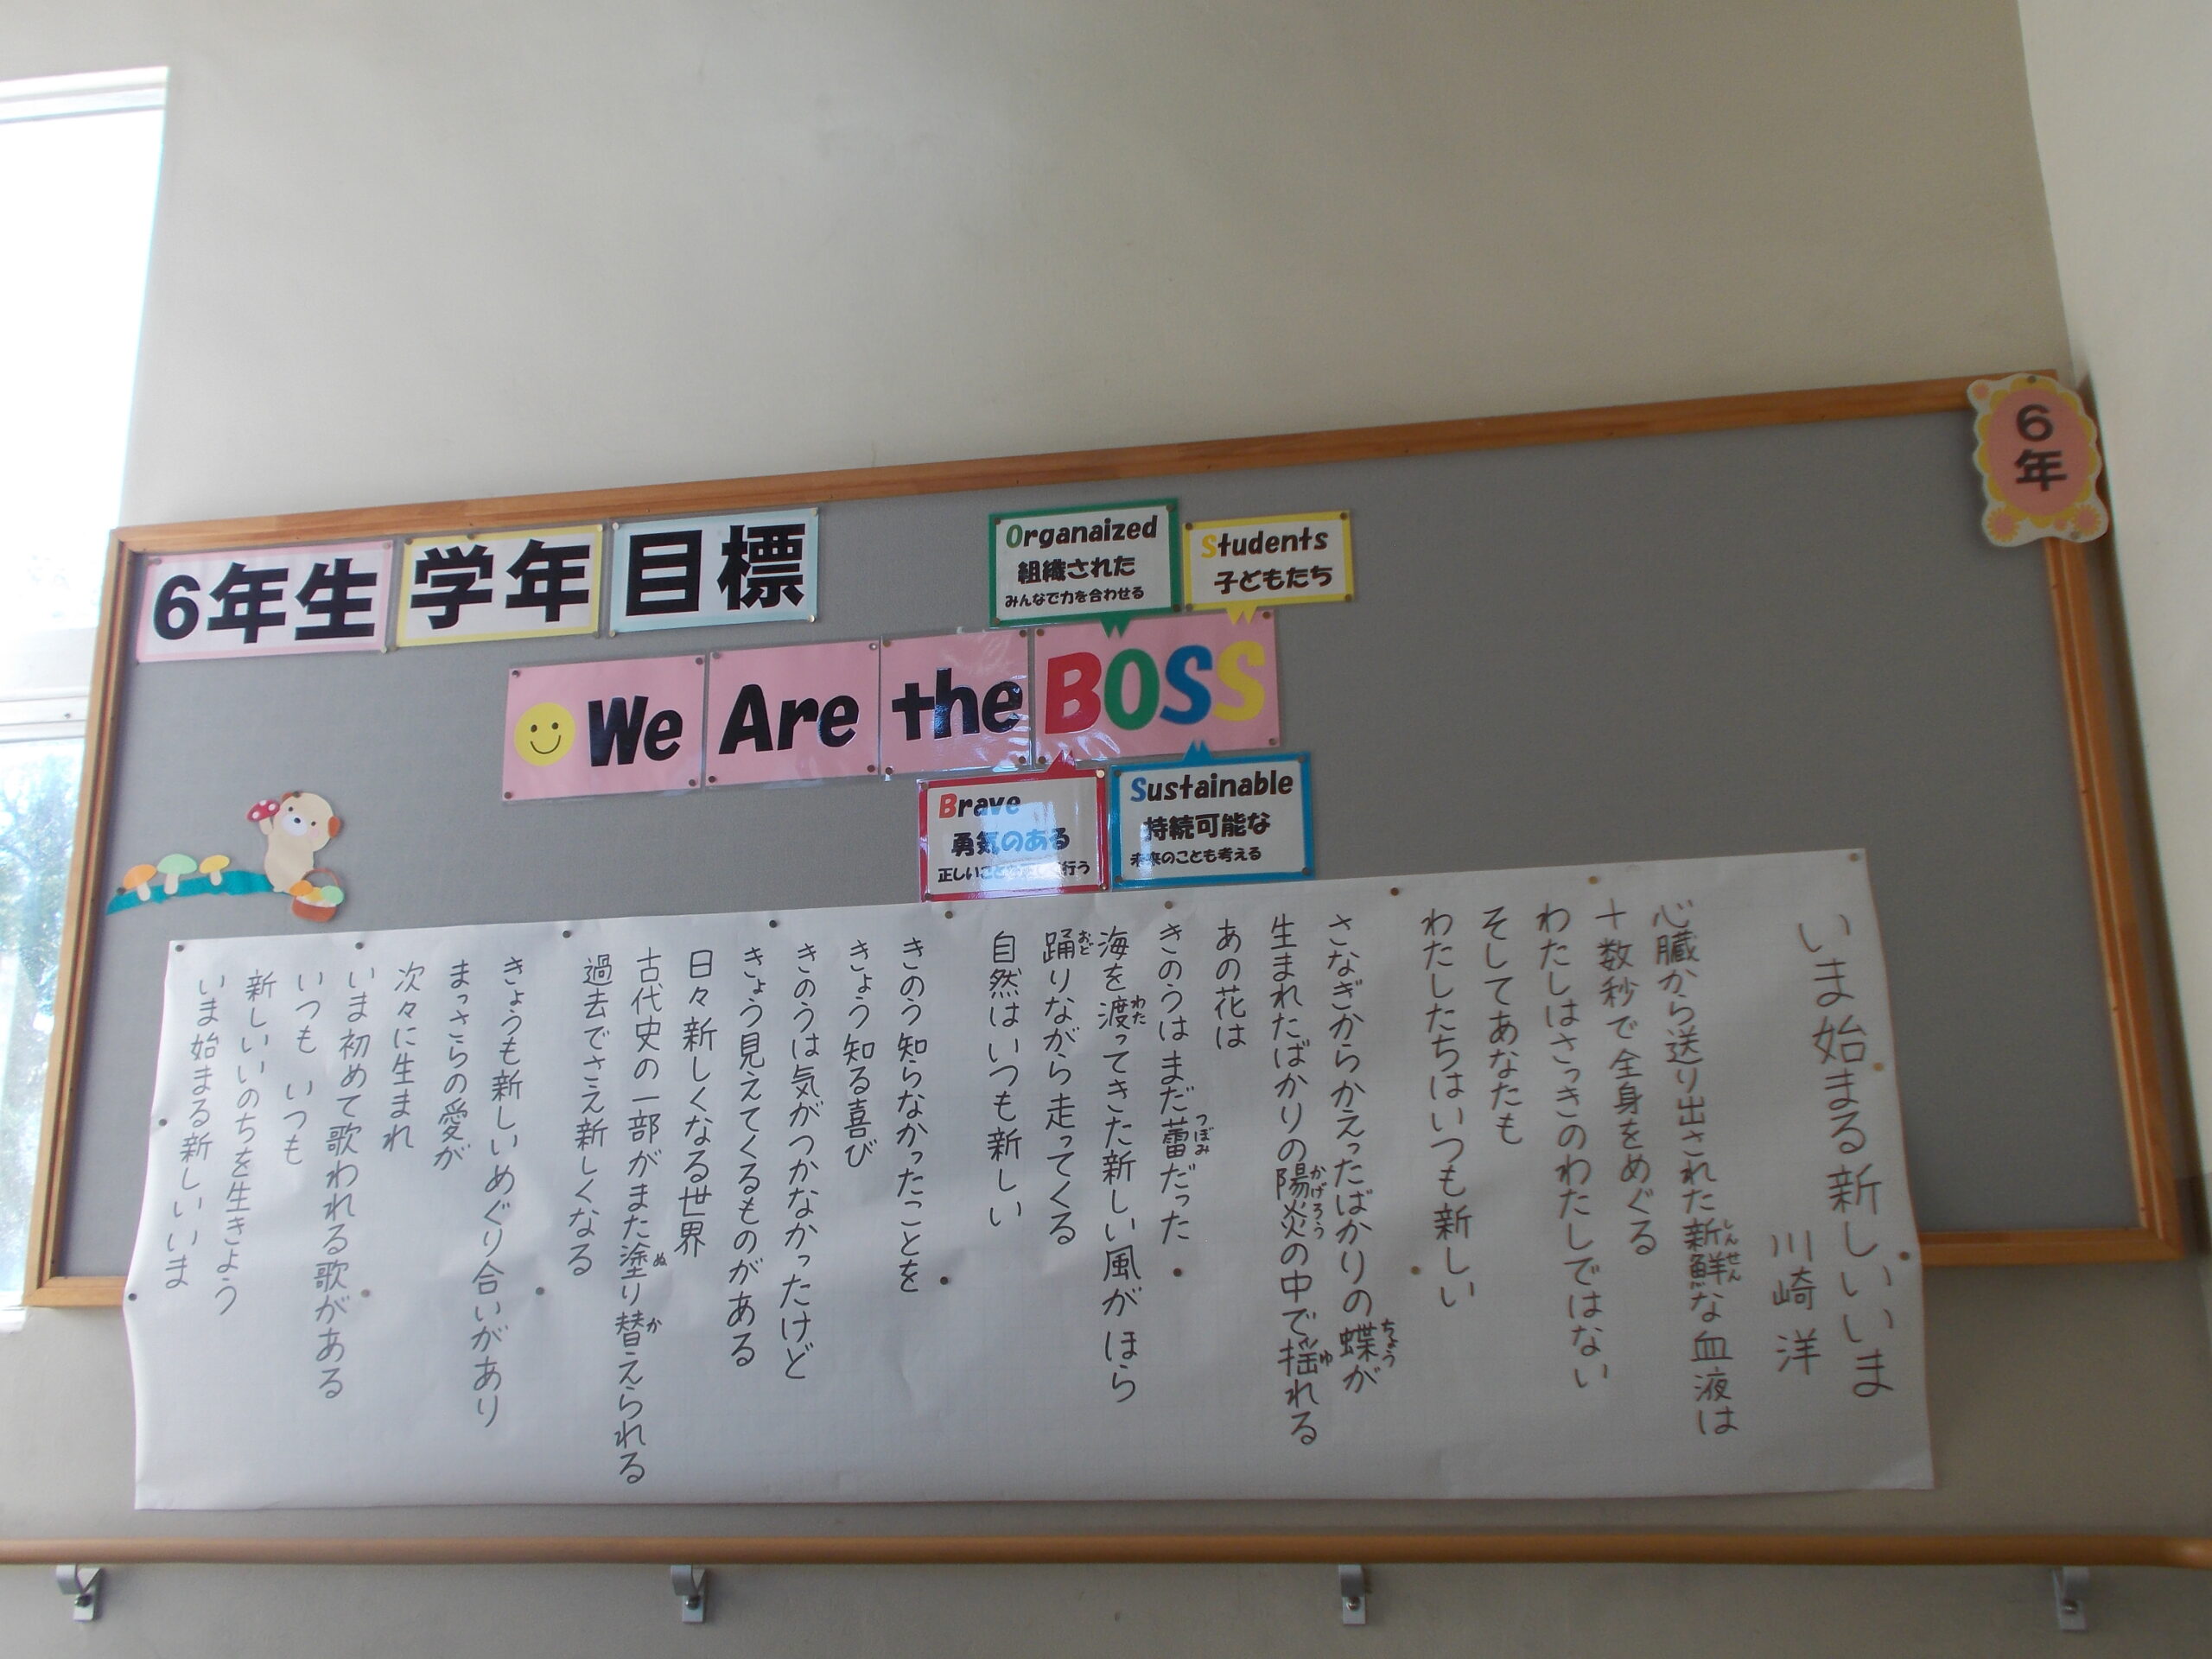 6年
6年生 学年 目標
Organaized
組織された
みんなで力を合わせる
Students
子どもたち
We Are the BOSS
Brave
勇気のある
正しいこと 行う
Sustainable
持続可能な
未来のことも考える
いま始まる新しいいま
川崎 洋
心臓から送り出された新鮮な血液は
しんせん
十数秒で全身をめぐる
わたしはさっきのわたしではない
そしてあなたも
わたしたちはいつも新しい
さなぎからかえったばかりの蝶が
ちょう
生まれたばかりの陽炎の中で揺れる
かげろう
ゆ
あの花は
きのうはまだ蕾だった
つぼみ
海を渡ってきた新しい風がほら
わた
踊りながら走ってくる
おど
自然はいつも新しい
きのう知らなかったことを
きょう知る喜び
きのうは気がつかなかったけど
きょう見えてくるものがある
日々新しくなる世界
古代史の一部がまた塗り替えられる
ぬ
か
過去でさえ新しくなる
きょうも新しいめぐり合いがあり
まっさらの愛が
次々に生まれ
いま初めて歌われる歌がある
いつも いつも
新しいいのちを生きよう
いま始まる新しいいま